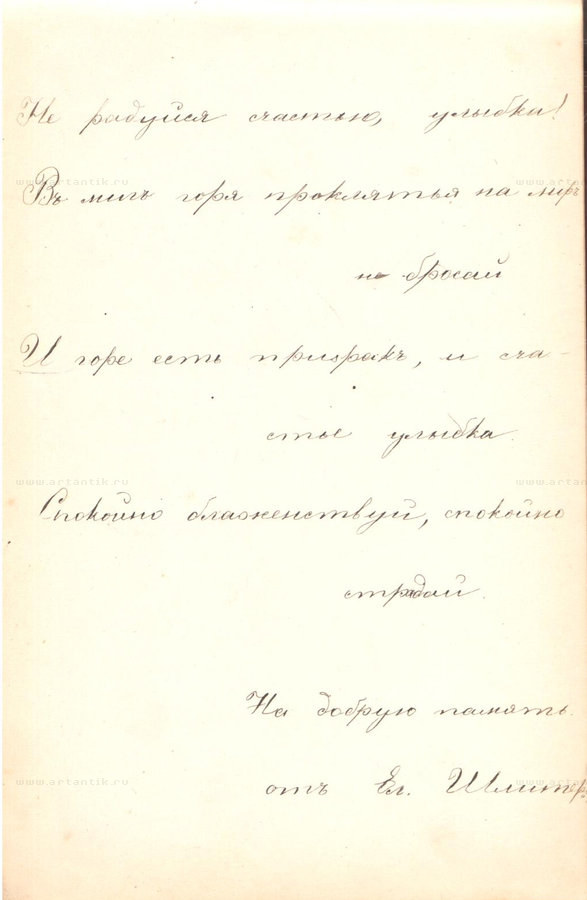 Не радуйся счастью, улыбка!
Въ мигъ горя проклятья на миръ
не бросай
И горе есть призракъ, и сча-
стье улыбка.
Спокойно блаженствуй, спокойно
страдай.
На добрую память.
отъ Ел.
www.artantik.ru
www.artantik.ru
www.artantik.ru
www.artantik.ru